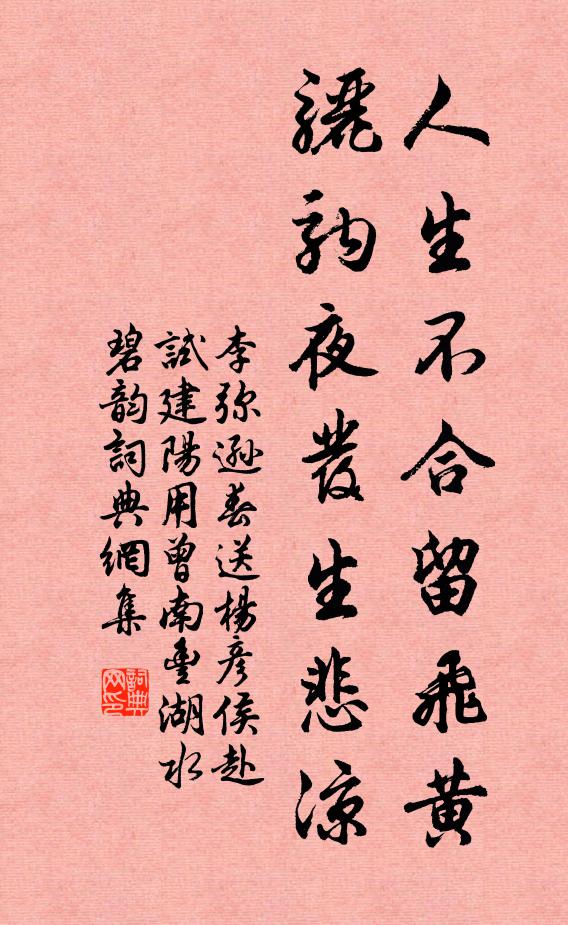 人生不合留飛黃
驪駒夜發生悲涼
李弥遜春送楊彥侯赴
試建陽用曾南豐湖水
碧韵詞典網集
詞典
网印